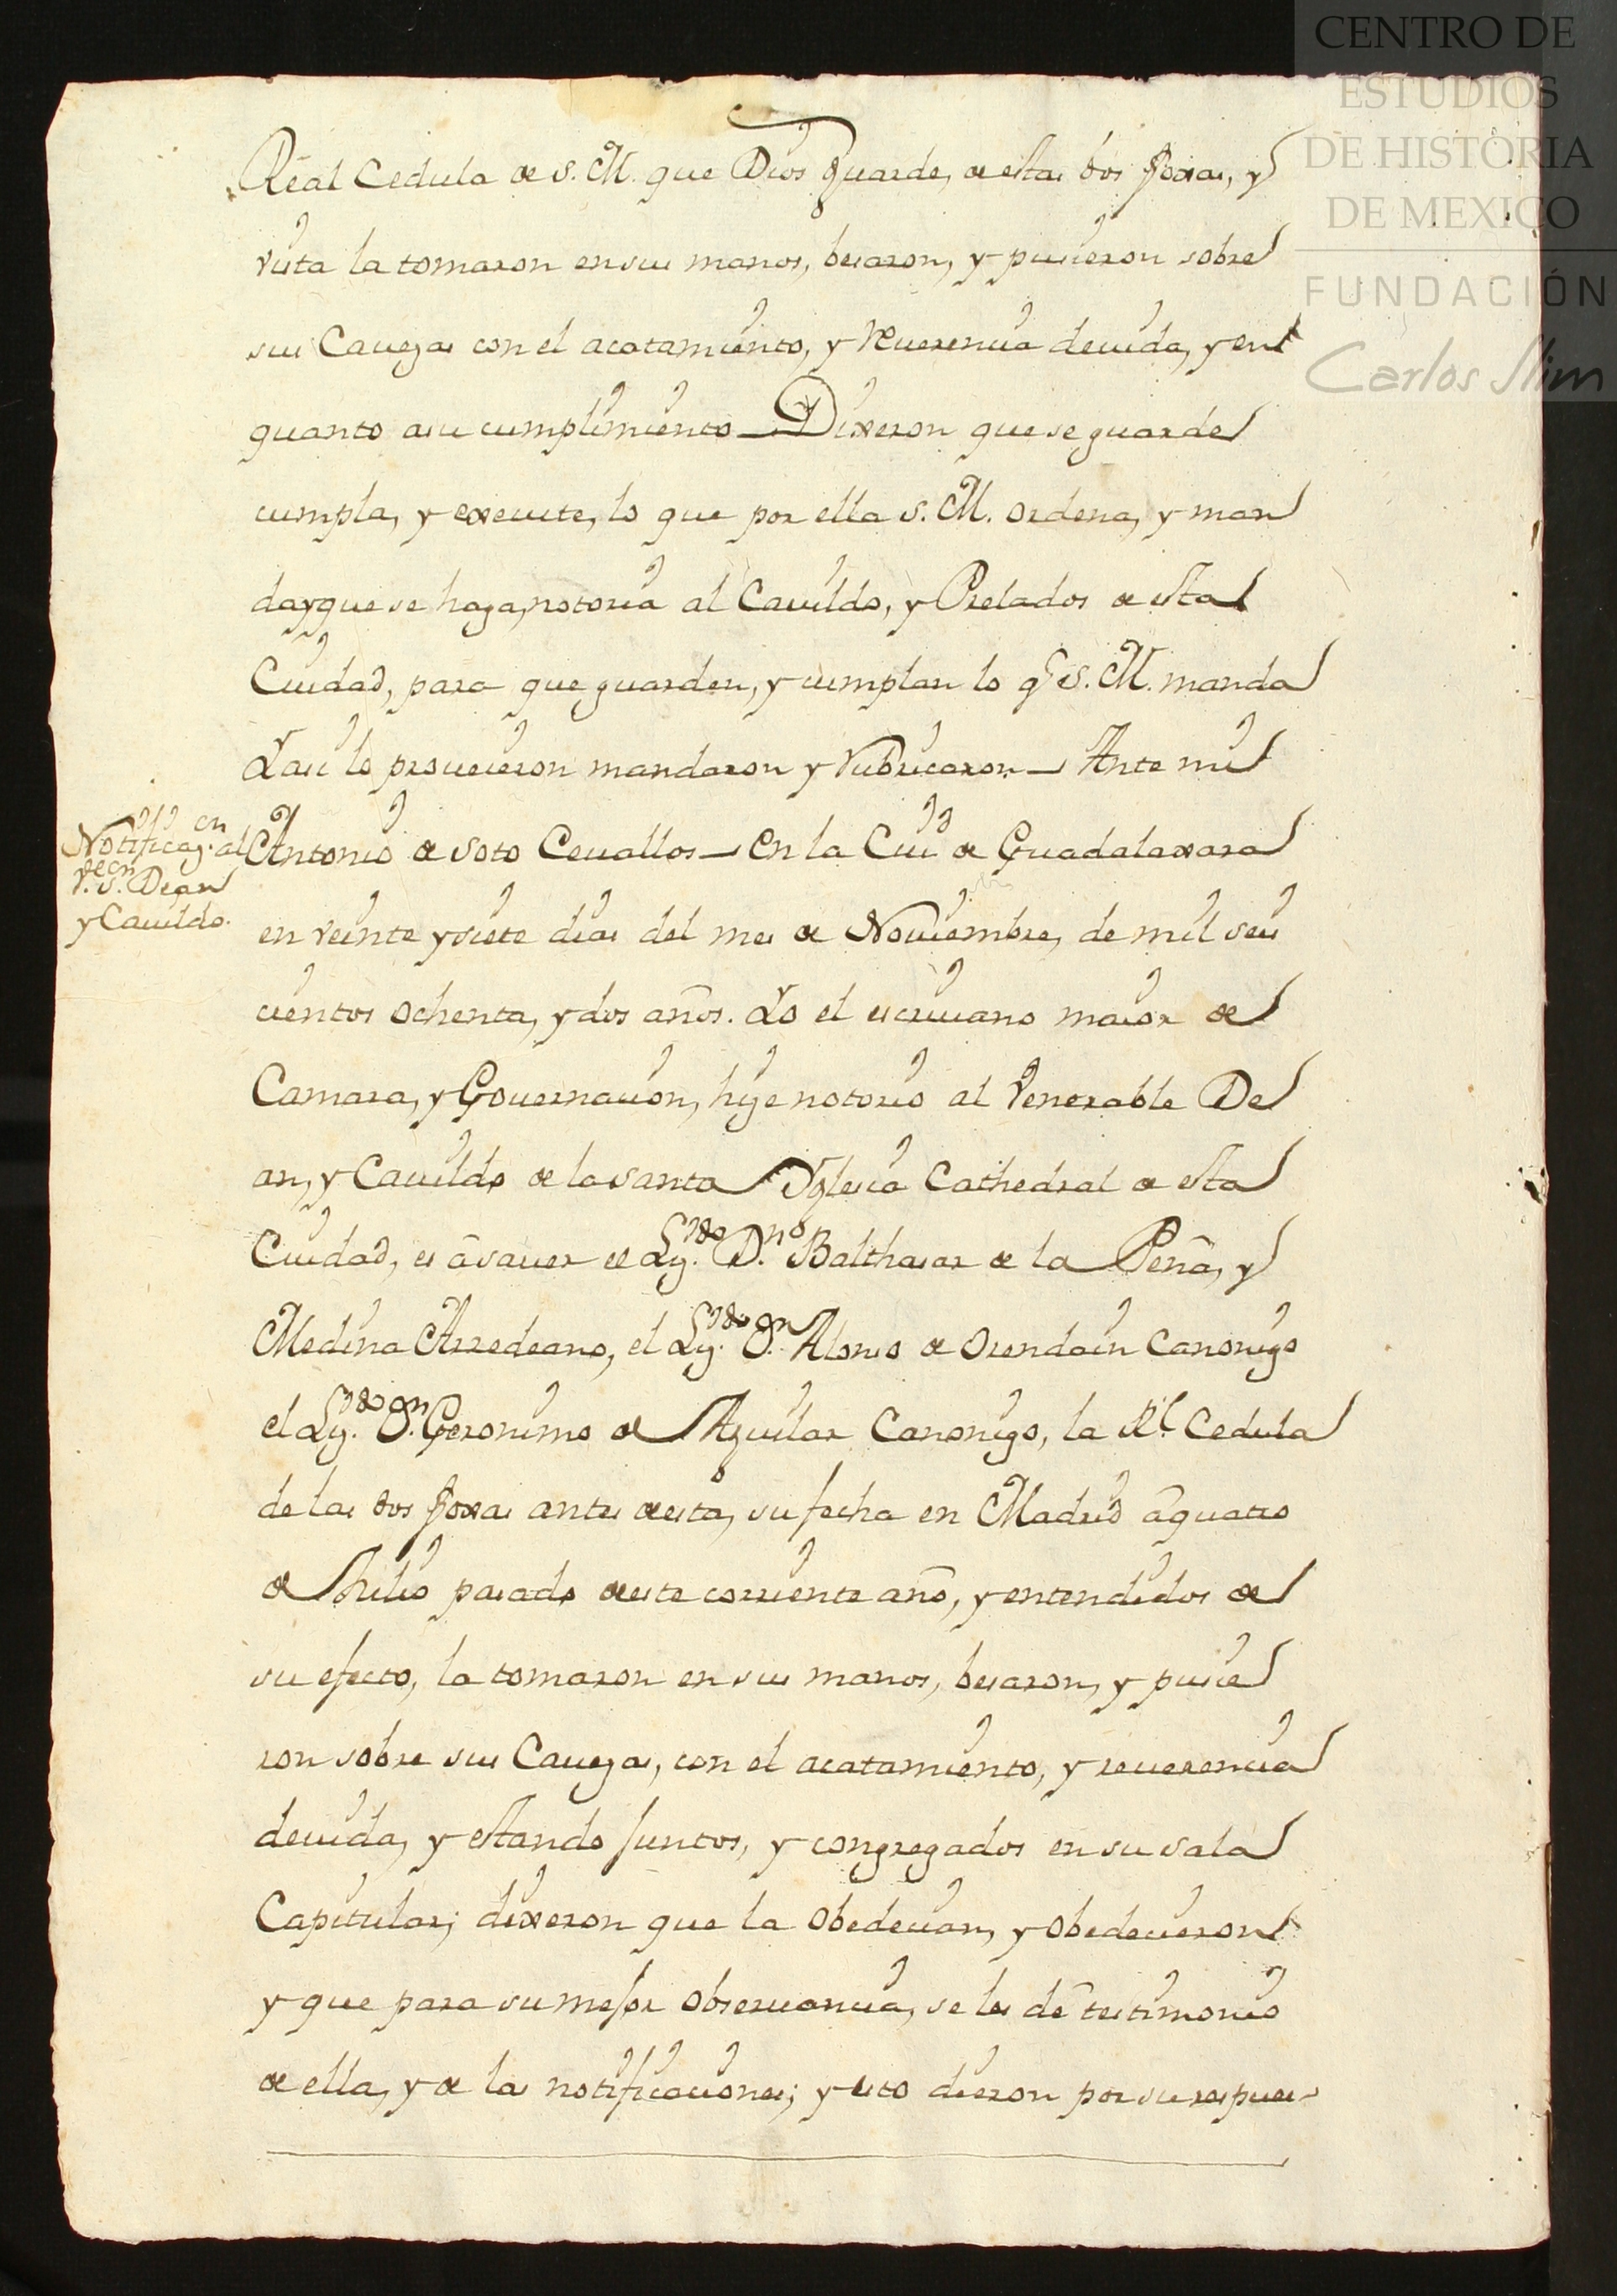 CENTRO DE
ESTUDIOS
DE HISTORIA
DE MEXICO
FUNDACIÓN
Carlos Slim
Real Cedula de S. M. que Dios guarde, de estas dos foxas, y
vista la tomaron en sus manos, besaron, y pusieron sobre
sus Cauezas con el acatamiento, y Reuerencia deuida, y en
quanto a su cumplimiento — Dixeron que se guarde
cumpla, y execute, lo que por ella S. M. ordena, y man
da, y que se haga, notoria al Cauildo, y Prelados de esta
Ciudad, para que guarden, y cumplan lo q̃ S. M. manda
Y asi lo proueieron mandaron y Rubricaron — Ante mi
Antonio de Soto Ceuallos — En la Ciud de Guadalaxara
Notificaz.on al
V.e S. Dean
y Cauildo.
en veinte y siete dias del mes de Nouiembre, de mil seis
cientos ochenta, y dos años. Yo el escriuano maior de
Camara, y Gouernacion, hize notorio al Venerable De
an, y Cauildo de la santa Yglesia Cathedral de esta
Ciudad, es â sauer el Liz.do D.n Balthasar de la Peña, y
Medina Arzedeano, el Liz.do D.n Alonso de Orendain Canonigo
el Liz.do D.n Geronimo de Aguilar Canonigo, la R.l Cedula
de las dos foxas antes de esta, su fecha en Madrid â quatro
de Julio pasado de este corriente año, y entendidos de
su efecto, la tomaron en sus manos, besaron, y pusie
ron sobre sus Cauezas, con el acatamiento, y reuerencia
deuida, y estando Juntos, y congregados en su sala
Capitular; dixeron que la obedecian, y obedecieron
y que para su mejor obseruancia, se les dê testimonio
de ella, y de las notificaciones; y esto dieron por su respues-